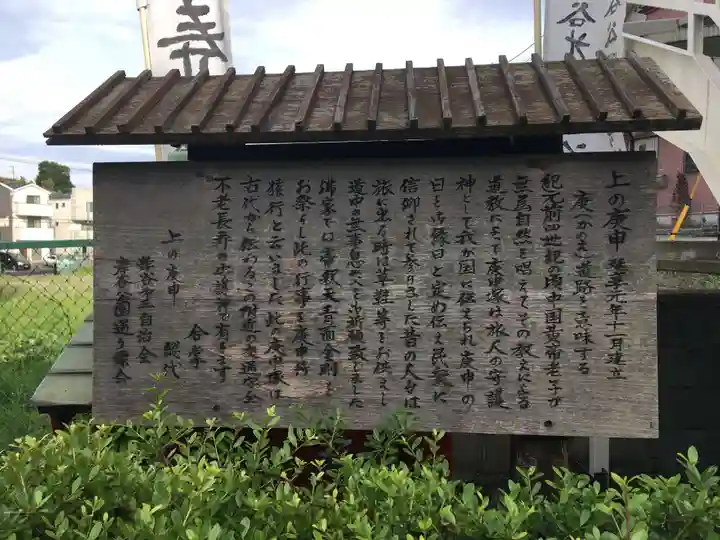 上の庚申 寛政元年十一月建立
庚(かのえ)道路を意味する
紀元前四世紀の頃中国黄帝老子が
無為自然を唱えてその教えによる
道教によって庚申塚は旅人の守護
神として我が国に伝えられ庚申の
日を御縁日と定め伝え民衆に
信仰されて参りました昔の人々は
旅に出る時は草鞋等をお供えし
道中の無事息災を御祈願致しました
佛家では帝釈天青面金剛を
お祭りし此の行事を庚申待
猿行と云いました此の庚申様は
古代から伝わるこの附近の交通安全
不老長寿の守護神で有ります
合掌
上の庚申 総代
自治会
公園通り商会
寿
谷